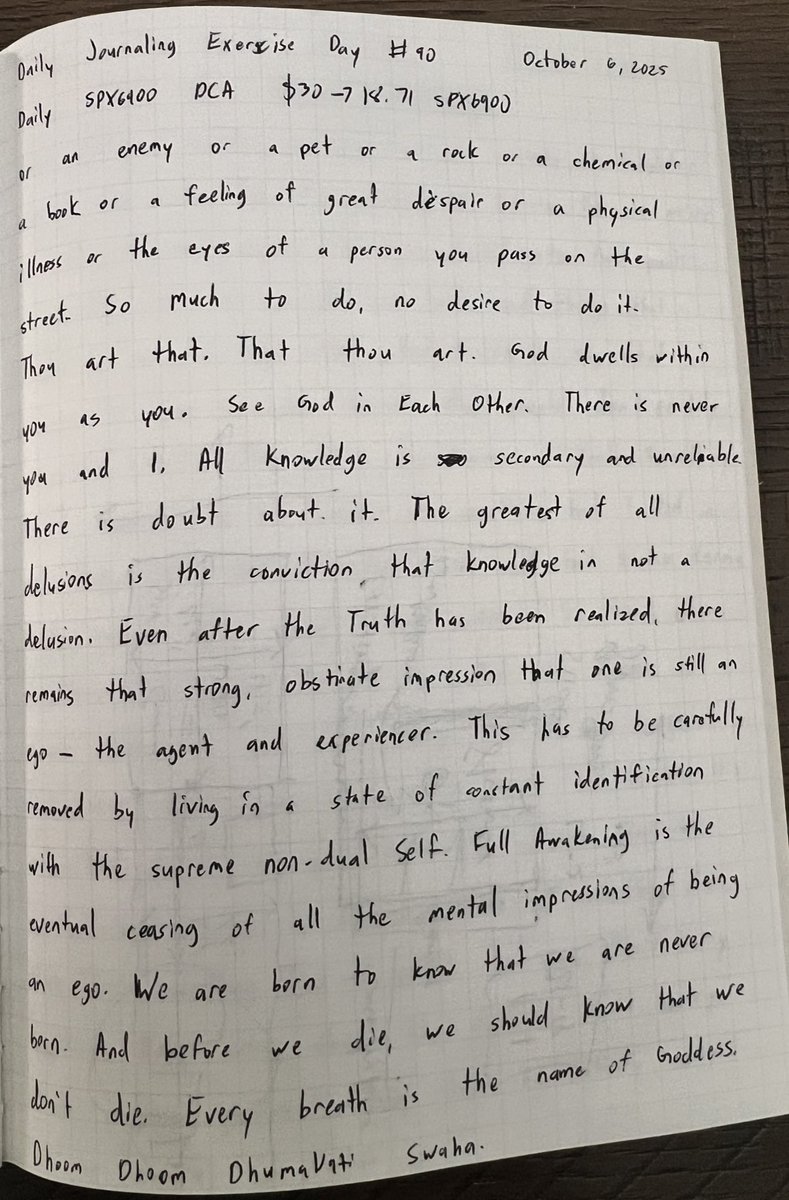 Daily Journaling Exercise Day #90 October 6, 2025
Daily SPX6900 DCA $30 → 18.71 SPX6900
or an enemy or a pet or a rock or a chemical or
a book or a feeling of great despair or a physical
illness or the eyes of a person you pass on the
street. So much to do, no desire to do it.
Thou art that. That thou art. God dwells within
you as you. See God in Each Other. There is never
you and I. All Knowledge is secondary and unreliable
There is doubt about it. The greatest of all
delusions is the conviction that knowledge in not a
delusion. Even after the Truth has been realized, there
remains that strong, obstinate impression that one is still an
ego - the agent and experiencer. This has to be carefully
removed by living in a state of constant identification
with the supreme non-dual Self. Full Awakening is the
eventual ceasing of all the mental impressions of being
an ego. We are born to know that we are never
born. And before we die, we should know that we
don't die. Every breath is the name of Goddess.
Dhoom Dhoom DhumaVati Swaha.